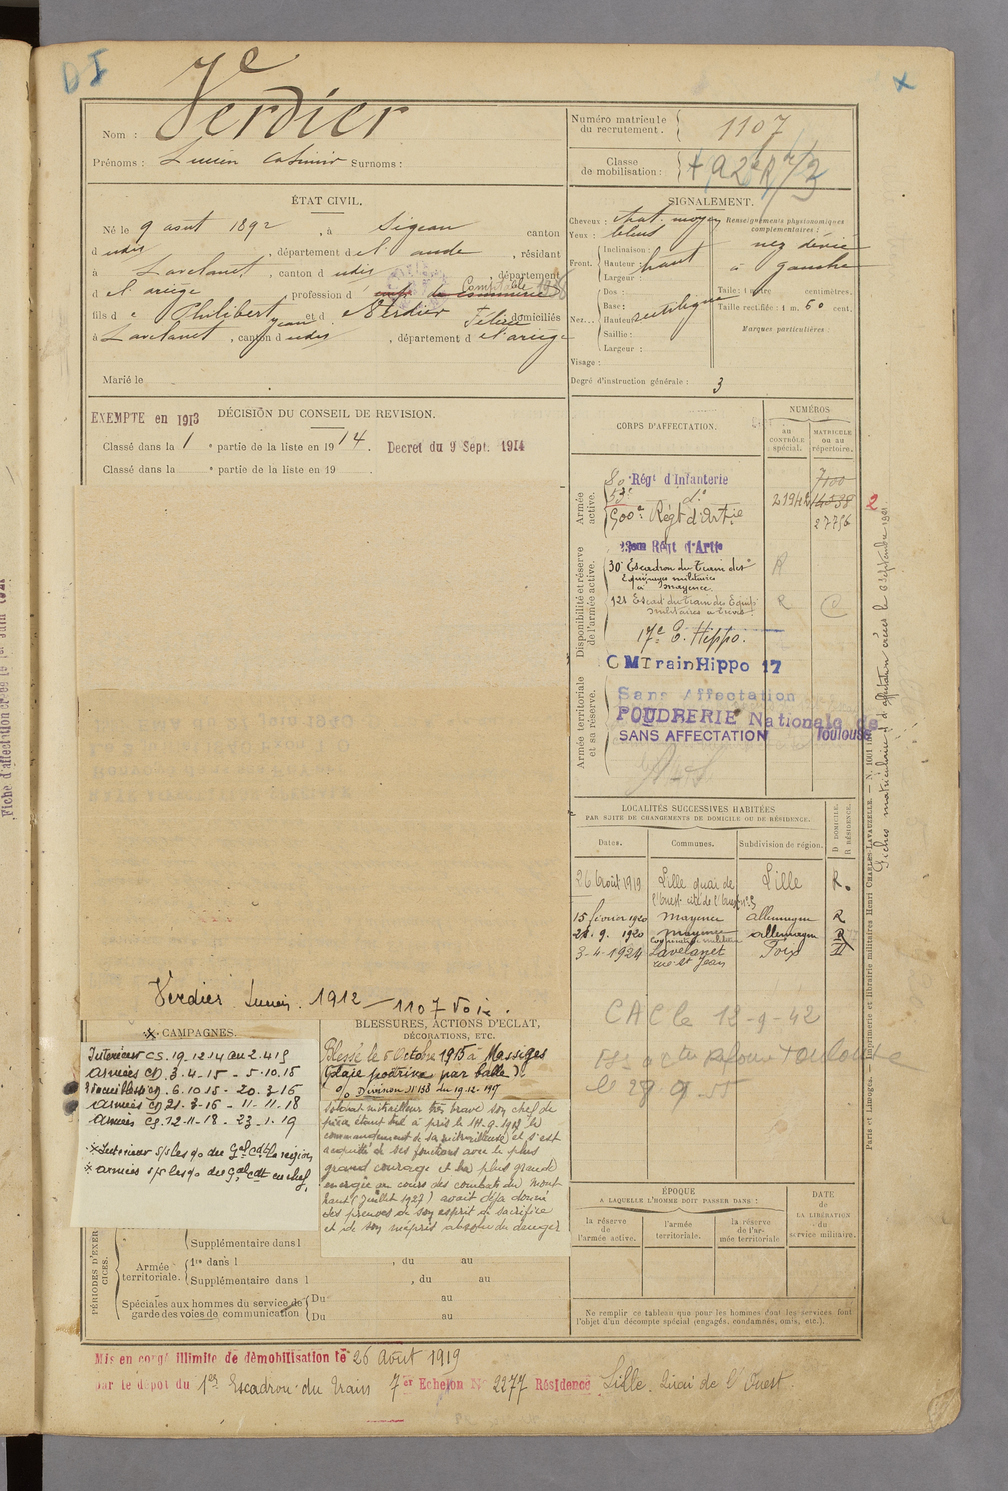 D I
Verdier
Nom :
Prénoms : Lucien Casimir Surnoms :
Numéro matricule du recrutement.
1107
Classe de mobilisation :
ÉTAT CIVIL.
Né le 9 août 1892, à Sigean canton
d udis, département d el aude, résidant
à Lavelanet, canton d udis, département
d el ariège, profession d Comptable
fils d e Philibert Jean et d e Verdier Félicie domiciliés
à Lavelanet, canton d udis, département d el ariège
Marié le
SIGNALEMENT.
Cheveux : chat. moyen
Yeux : bleus
Front.
Inclinaison :
Hauteur : haut
Largeur :
Nez...
Dos :
Base :
Hauteur : rectiligne
Saillie :
Largeur :
Visage :
Renseignements physionomiques complémentaires :
nez dévié
à gauche
Taille : 1 mètre centimètres.
Taille rectifiée : 1 m. 60 cent.
Marques particulières :
Degré d'instruction générale : 3
EXEMPTE en 1913
DÉCISION DU CONSEIL DE REVISION.
Classé dans la 1 e partie de la liste en 1914. Decret du 9 Sept. 1914
Classé dans la e partie de la liste en 19 .
CORPS D'AFFECTATION.
NUMÉROS
au CONTRÔLE spécial.
MATRICULE ou au répertoire.
Armée active.
80e Régt d'Infanterie 7100
53e d° 21942
500e Régt d'Artie 27756
2
Disponibilité et réserve de l'armée active.
Régt d'Artie
30e Escadron du Train des
Equipages militaires
à Mayence R
121 Escad du train des Equip R C
17e E. Hippo.
CMTrainHippo 17
Armée territoriale et sa réserve.
Sans Affectation
POUDRERIE Nationale de
Toulouse
SANS AFFECTATION
LOCALITÉS SUCCESSIVES HABITÉES
PAR SUITE DE CHANGEMENTS DE DOMICILE OU DE RÉSIDENCE.
Dates. Communes. Subdivision de région. D DOMICILE. R RÉSIDENCE.
26 Août 1919 Lille quai de Lille R.
l'Ouest cité de l'Ouest n°3
15 février 1920 Mayence Allemagne R
21. 9. 1920 Mayence Allemagne R
3-4-1924 Lavelanet Foix
rue St Jean
CAC le 12-9-42
le 28 9 55
Verdier Lucien. 1912 – 1107 Voie.
CAMPAGNES.
Intérieur CS. 19.12.14 au 2.4.15
Armées CD. 3.4.15 – 5.10.15
6.10.15 – 20.3.16
Armées CD 21.3.16 – 11.11.18
Armées CS. 12.11.18 – 23.1.19
x Intérieur s/s les o/ du Gal Cdt la région
x Armées s/s les o/ du Gal Cdt en chef,
BLESSURES, ACTIONS D'ÉCLAT,
DÉCORATIONS, ETC.
Blessé le 5 Octobre 1915 à Massiges
(plaie poitrine par balle).
o/ Division N° 133 du 19.12.1917
Soldat mitrailleur très brave son chef de
pièce étant tué a pris le
commandement de sa mitrailleuse et s'est
acquitté de ses fonctions avec le plus
grand courage et la plus grande
énergie au cours des combats du Mont
haut (juillet 1917) avait déjà donné
des preuves de son esprit de sacrifice
et de son mépris absolu du danger
PÉRIODES D'EXERCICES.
Supplémentaire dans l
Armée territoriale.
1re dans l , du au
Supplémentaire dans l , du au
Spéciales aux hommes du service de garde des voies de communication
Du au
Du au
ÉPOQUE
A LAQUELLE L'HOMME DOIT PASSER DANS :
la réserve de l'armée active.
l'armée territoriale.
la réserve de l'armée territoriale
DATE de LA LIBÉRATION du service militaire.
Ne remplir ce tableau que pour les hommes dont les services font
l'objet d'un décompte spécial (engagés, condamnés, omis, etc.).
Mis en congé illimité de démobilisation le 26 Août 1919
par le dépôt du 1er Escadron du Train 7er Echelon N° 2277 Résidence Lille. Quai de l'Ouest.
Paris et Limoges. — Imprimerie et librairie militaires Henri CHARLES-LAVAUZELLE. — N. 1001
Fiches matriculaire et d'affectation créées le 6 septembre 1921